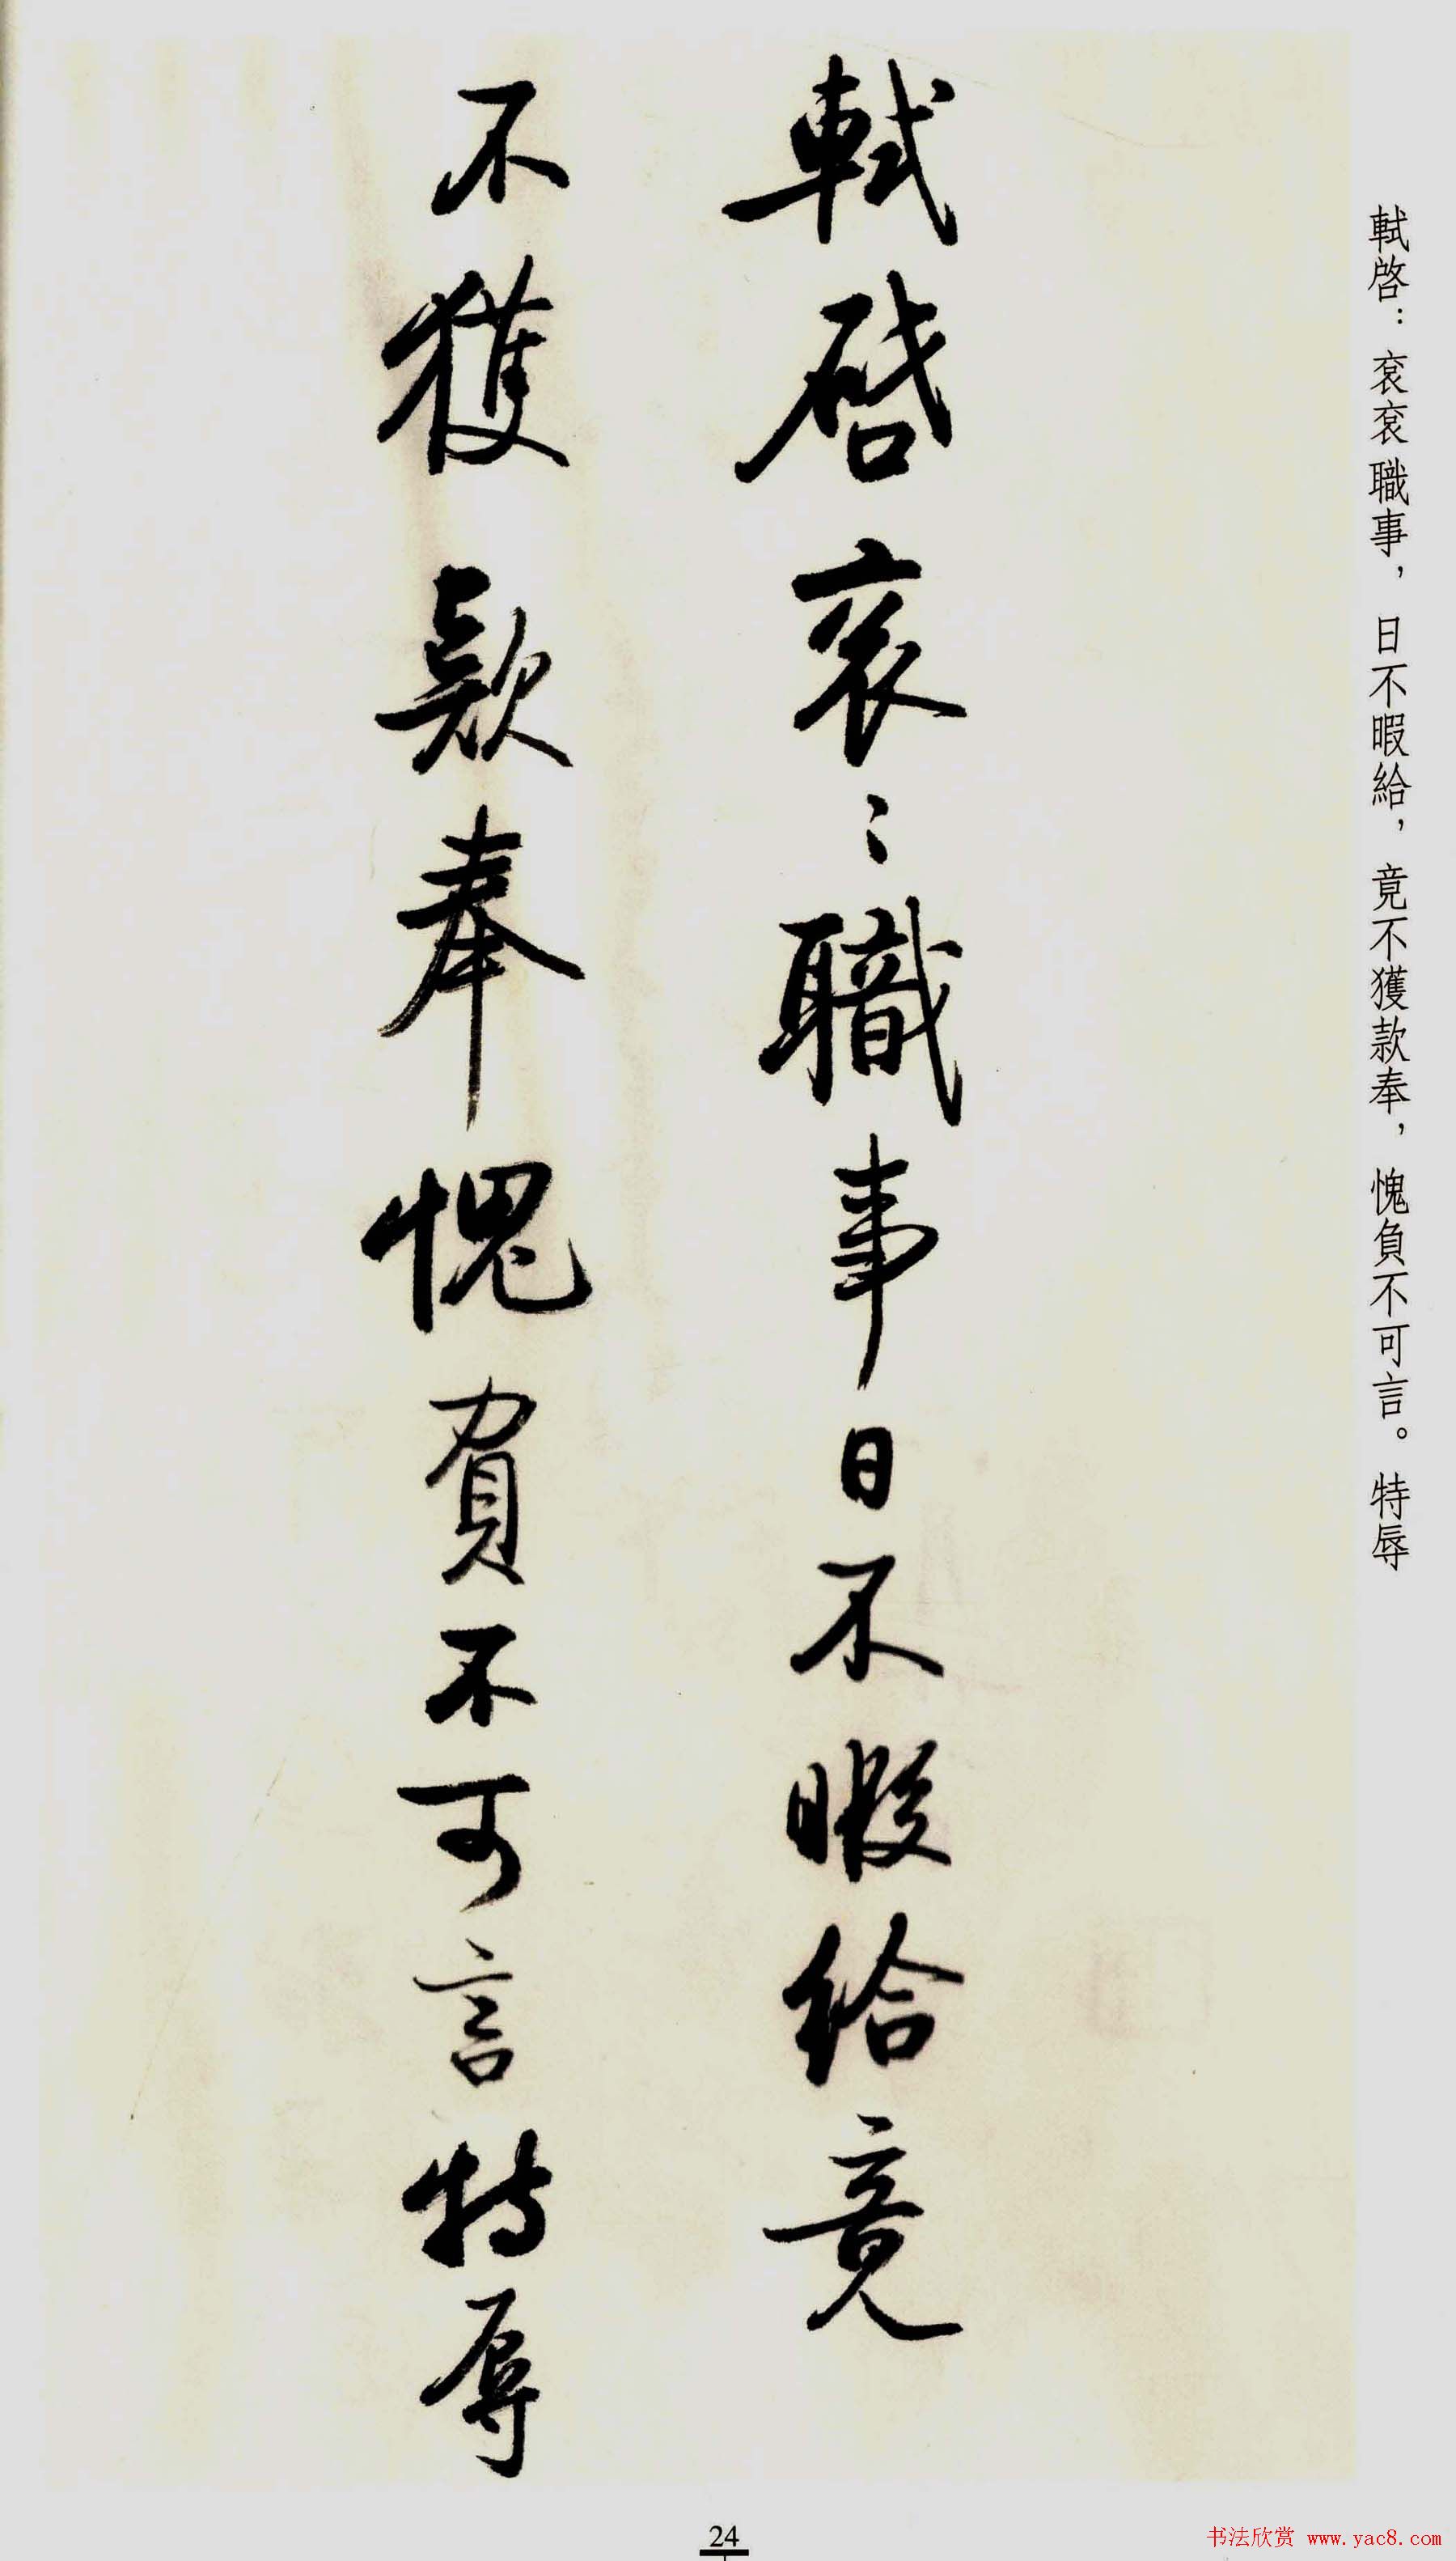 軾啓：衮衮職事，日不暇給，竟不獲款奉，愧負不可言。特辱
軾啓衮〻職事日不暇給竟
不獲款奉愧負不可言特辱
24
书法欣赏 www.yac8.com